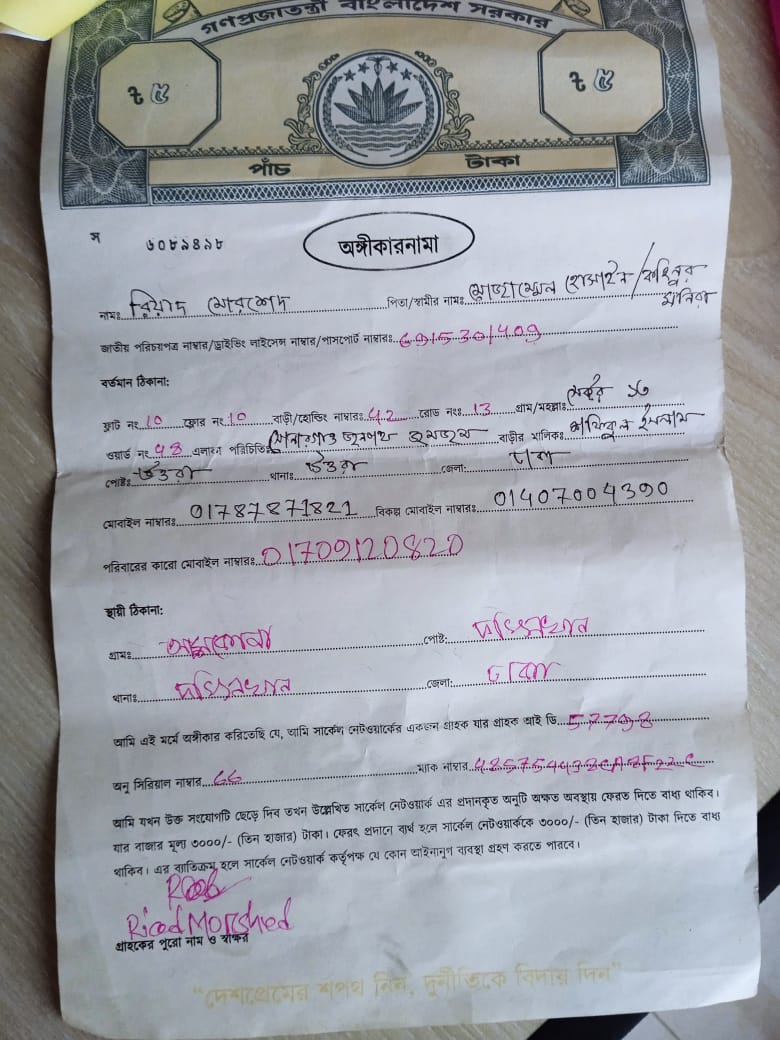 গণপ্রজাতন্ত্রী বাংলাদেশ সরকার
৳ ৫ ৳ ৫
পাঁচ টাকা
স ৬০৮৯৪৯৮
অঙ্গীকারনামা
নামঃ রিয়াদ মোরশেদ পিতা/স্বামীর নামঃ মোজাম্মেল হোসাইন/
জাতীয় পরিচয়পত্র নাম্বার/ড্রাইভিং লাইসেন্স নাম্বার/পাসপোর্ট নাম্বারঃ 6915301409
বর্তমান ঠিকানা:
ফ্লাট নং 10 ফ্লোর নং 10 বাড়ী/হোল্ডিং নাম্বারঃ 42 রোড নংঃ 13 গ্রাম/মহল্লাঃ সেক্টর
ওয়ার্ড নং এলাকা পরিচিতিঃ সোনারগাঁও জনপথ বাড়ীর মালিকঃ ইসলাম
পোষ্টঃ উত্তরা থানাঃ উত্তরা জেলা: ঢাকা
মোবাইল নাম্বারঃ 01787871821 বিকল্প মোবাইল নাম্বারঃ 01407004390
পরিবারের কারো মোবাইল নাম্বারঃ 01709120820
স্থায়ী ঠিকানা:
গ্রামঃ পোষ্ট: দক্ষিনখান
থানাঃ দক্ষিনখান জেলা: ঢাকা
আমি এই মর্মে অঙ্গীকার করিতেছি যে, আমি সার্কেল নেটওয়ার্কের একজন গ্রাহক যার গ্রাহক আই ডি
অনু সিরিয়াল নাম্বার ম্যাক নাম্বার
আমি যখন উক্ত সংযোগটি ছেড়ে দিব তখন উল্লেখিত সার্কেল নেটওয়ার্ক এর প্রদানকৃত অনুটি অক্ষত অবস্থায় ফেরত দিতে বাধ্য থাকিব।
যার বাজার মূল্য ৩০০০/- (তিন হাজার) টাকা। ফেরৎ প্রদানে ব্যর্থ হলে সার্কেল নেটওয়ার্ককে ৩০০০/- (তিন হাজার) টাকা দিতে বাধ্য
থাকিব। এর ব্যতিক্রম হলে সার্কেল নেটওয়ার্ক কর্তৃপক্ষ যে কোন আইনানুগ ব্যবস্থা গ্রহণ করতে পারবে।
Riad Morshed
গ্রাহকের পুরো নাম ও স্বাক্ষর
"দেশপ্রেমের শপথ নিন, দুর্নীতিকে বিদায় দিন"